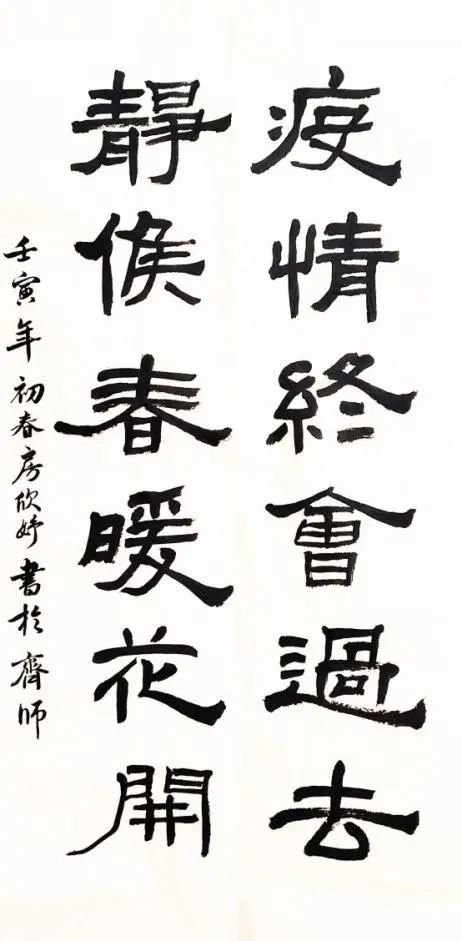 疫情終會過去
靜候春暖花開
壬寅年初春房欣妤書於齊師